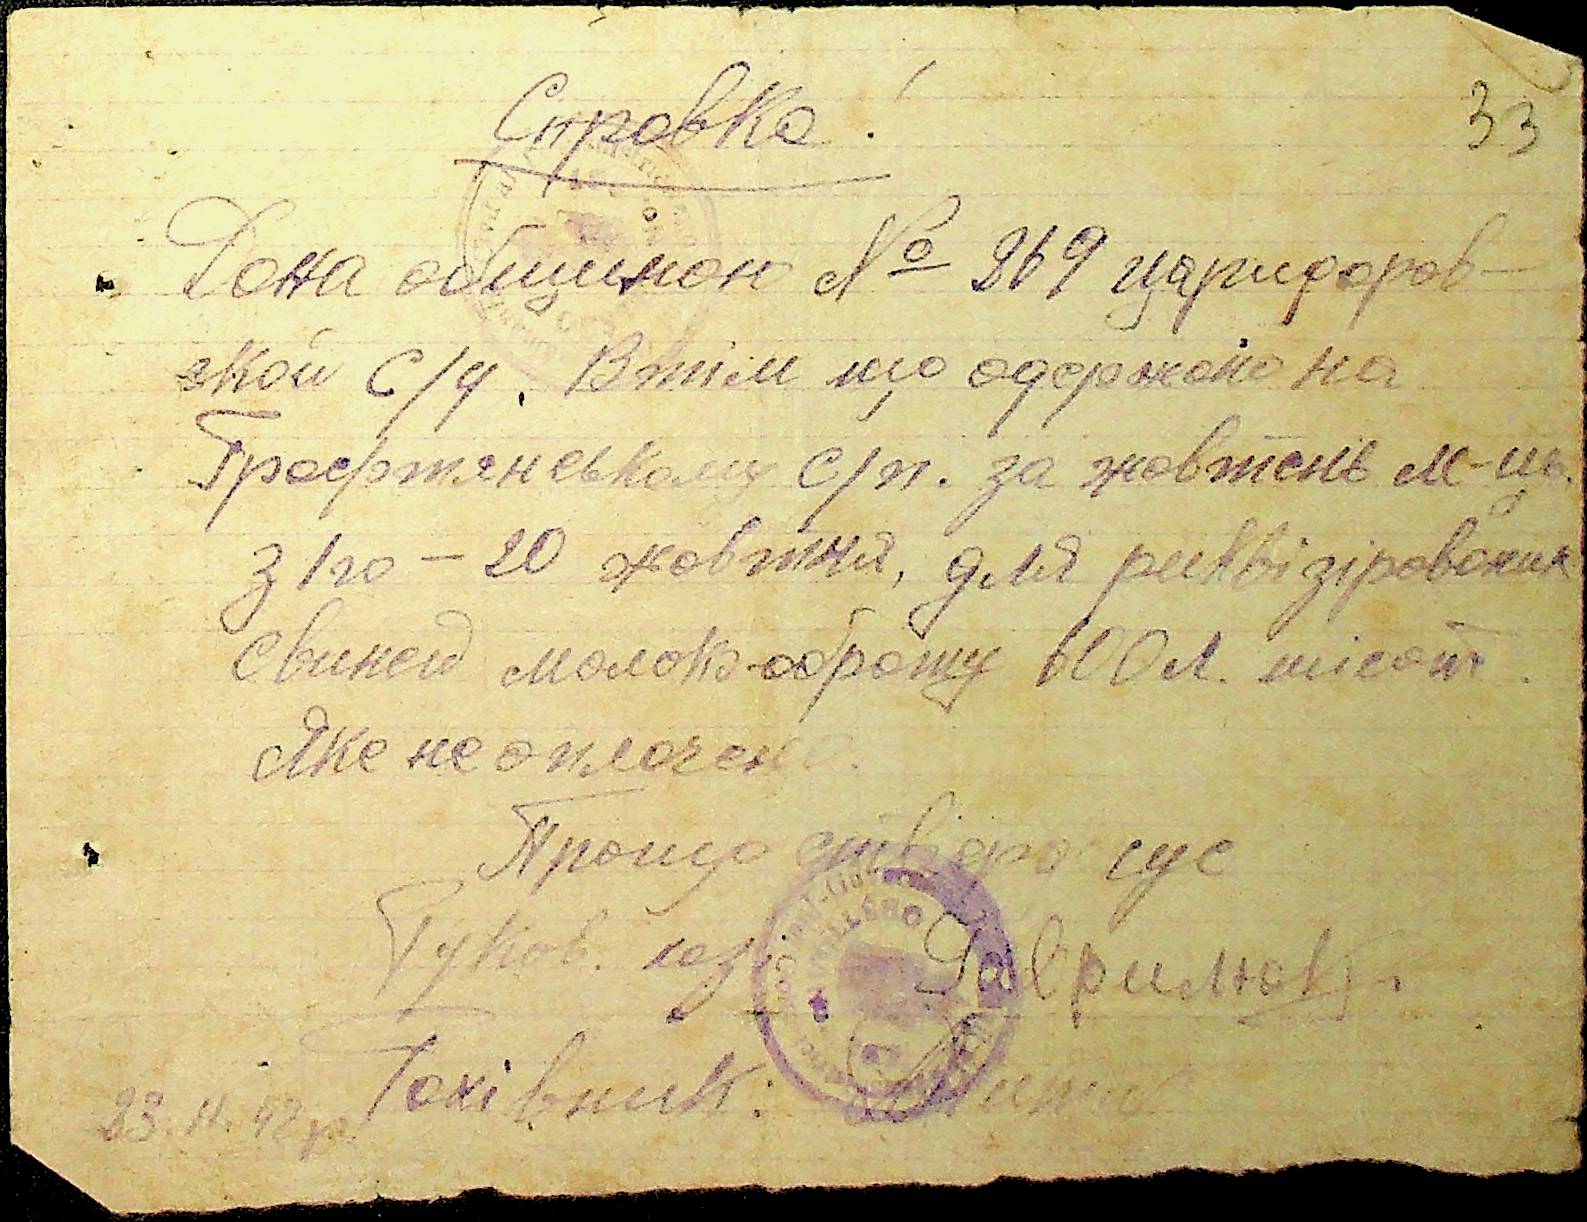 Справка!
33
Дана общинон № 269 царидаров-
ской с/у. В тім що одержано на
Графтянському с/п. за жовтень м-ць.
з 1го - 20 жовтня, для риквізіровоних
свиней молоко-оброту 600 л. шісот.
Яке не оплочено.
Прощо стверо сує
Руков.
Гаврилюк.
Рахівник.
23.11.42 р.